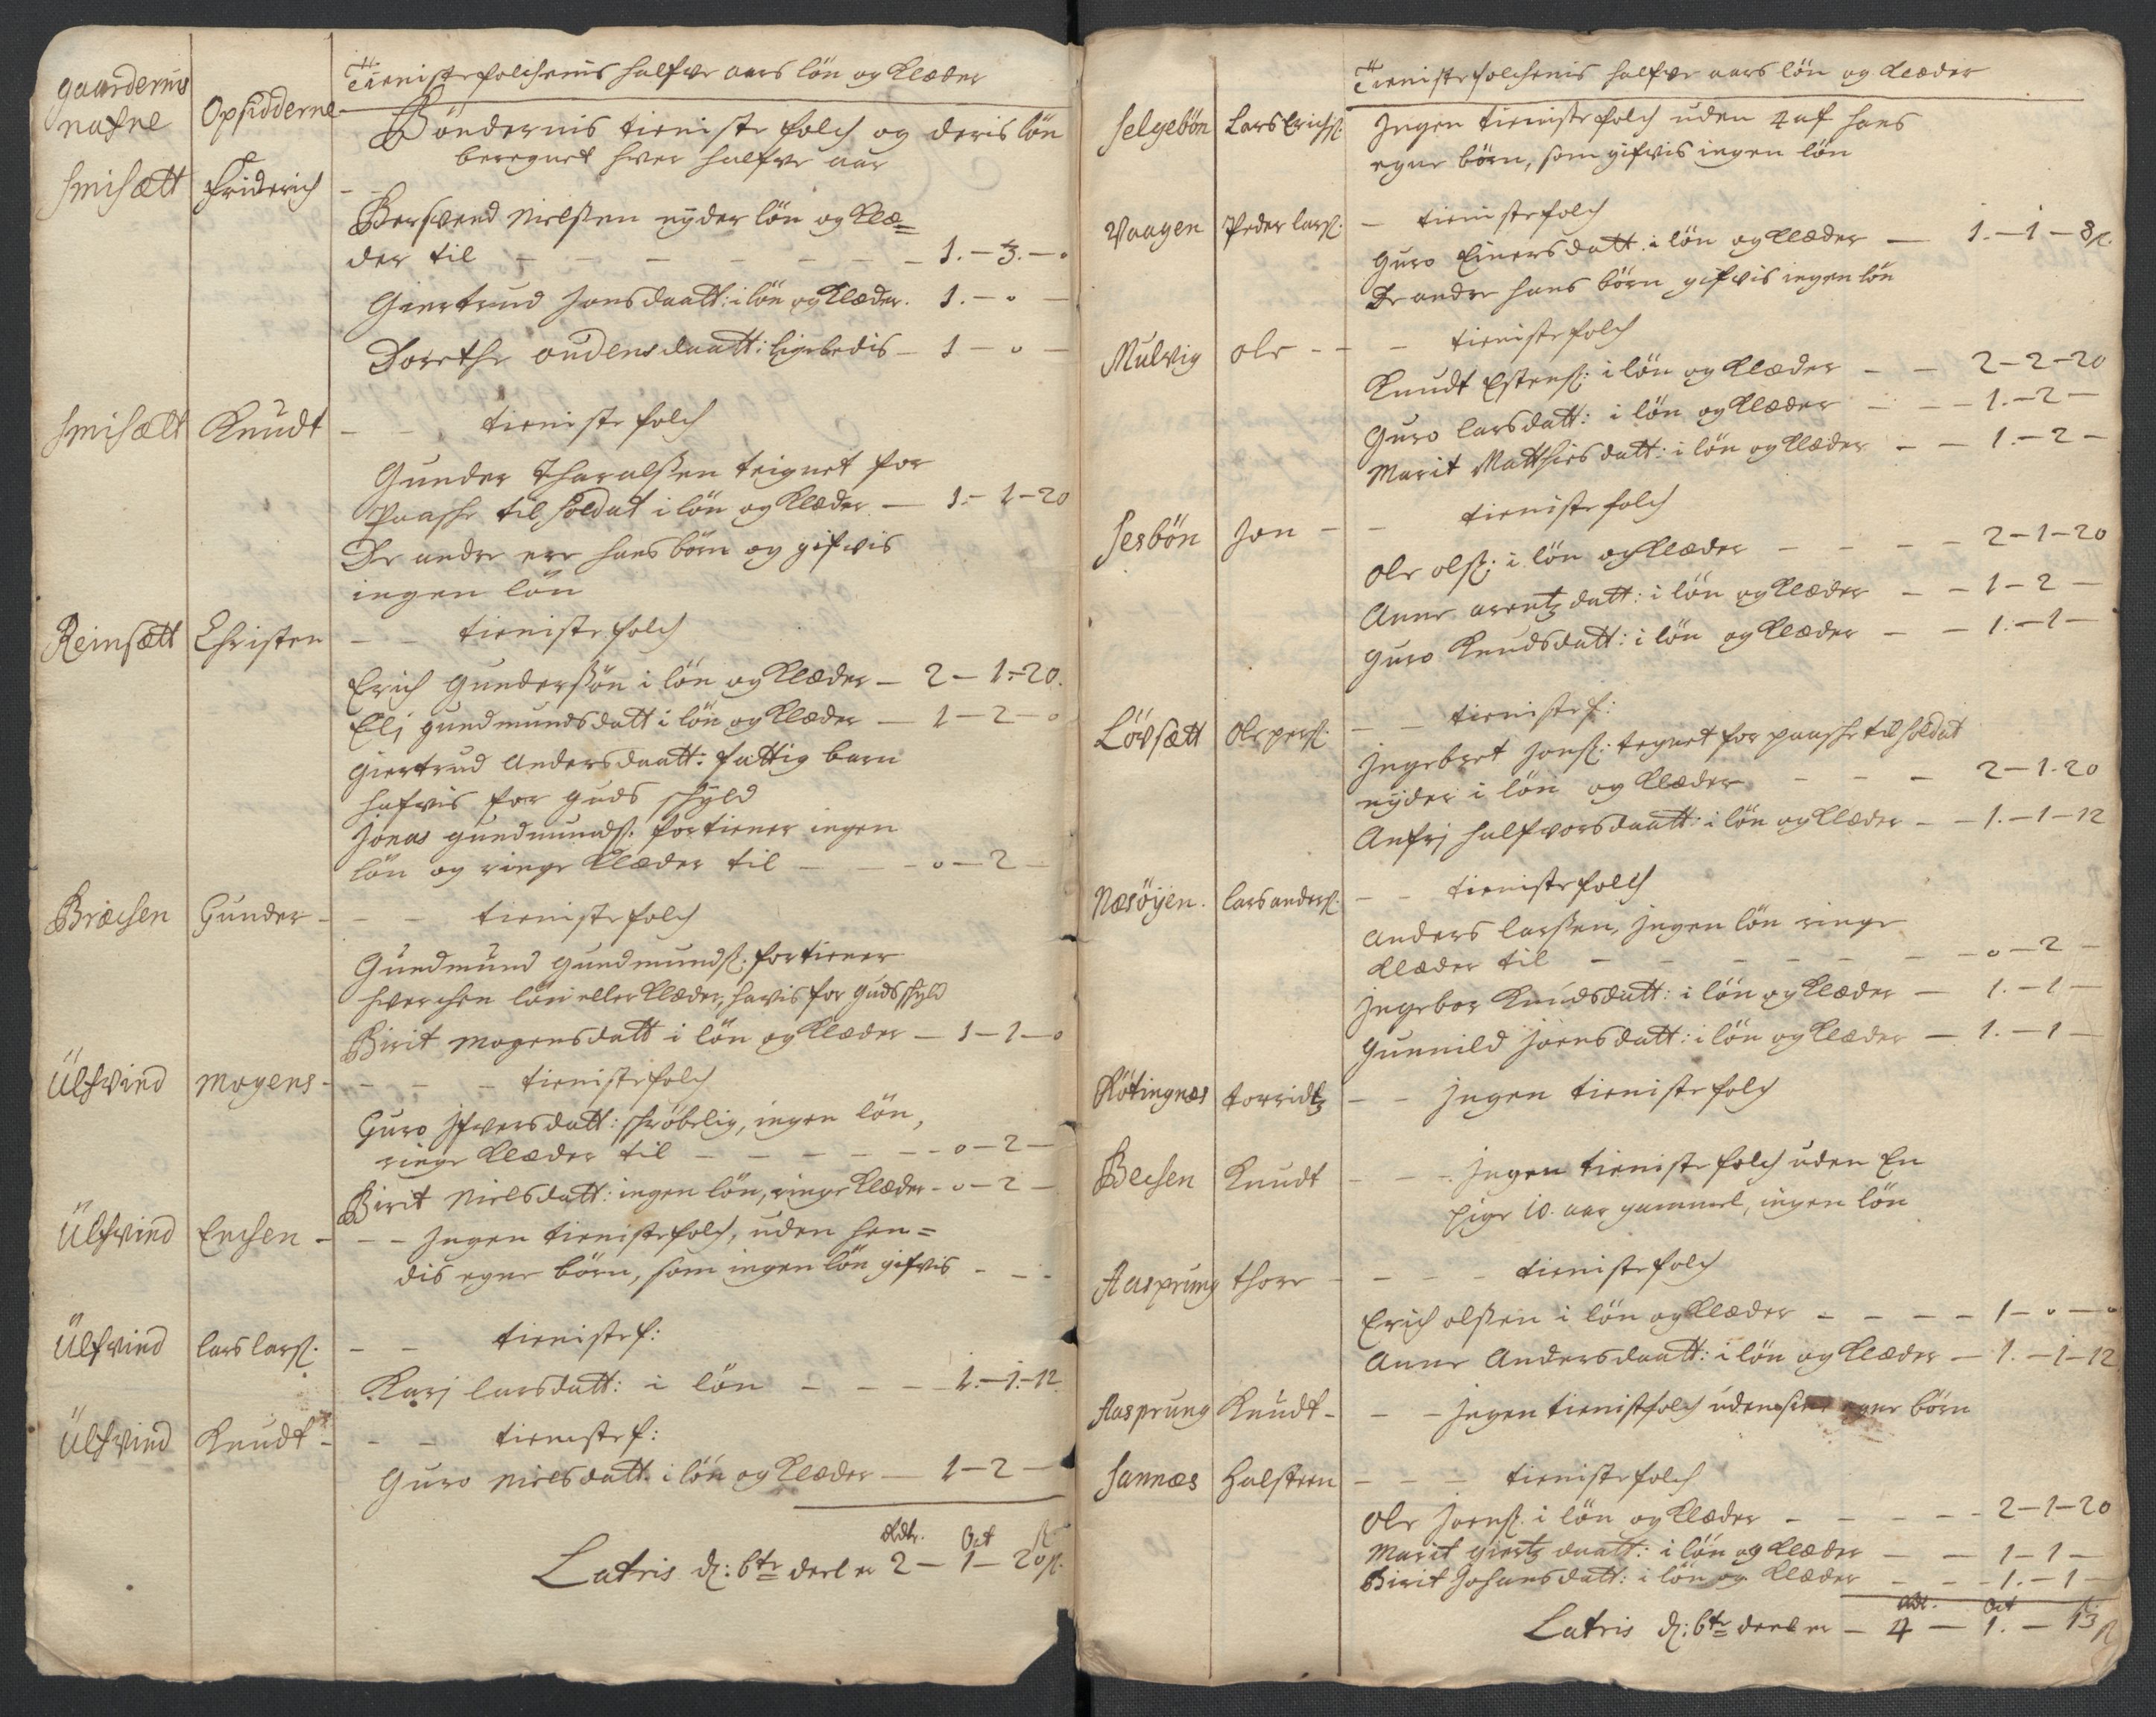 gaardernis nafne | Opsidderne | Tienistefolchenis halfve aars lön og Klæder
Böndernis tieniste folch og deris lön
beregnet hver halfve aar
Smisætt | Friderich - -
Bersvend Nielssen nÿder lön og Klæ=
der til - - - - - - 1.-3.-o
Giertrud Jonsdaatt: i lön og Klæder. 1.-o-
Dorethe oudensdaatt: ligeledis - 1-o-
Smisætt | Knudt - - tieniste folch
Gunder Tharalssen teignet for
Paasche til Soldat i lön og Klæder - 1.-1-20
De andre ere hans börn og gifvis
ingen lön
Reinsætt | Christen - - tieniste folch
Erich Gunderssön i lön og Klæder - 2-1-20.
Eli gundmundsdatt i lön og Klæder - 1-2-o
Giertrud Andersdaatt: fattig barn
hafvis for guds schÿld
Jonas gundmunds: fortiener ingen
lön og ringe Klæder til - - o-2-
Bræchen | Gunder - - - tieniste folch
Gundmund gundmunds: fortiener
hverchen lön eller Klæder, havis for guds schÿld
Birit Mogensdatt i lön og Klæder - 1-1-o
Ülfvind | Mogens - - - - tienistefolch
Guro Ifversdatt: schröbelig, ingen lön,
ringe Klæder til - - - - - - o-2-
Birit Nielsdatt: ingen lön, ringe Klæder - o-2-
Ülfvind | Enchen - - - Ingen tienistefolch, uden hen=
dis egne börn, som ingen lön gifvis - - -
Ülfvind | Lars lars: - - tieniste f:
Karj larsdatt: i lön - - - 1.-1.-12
Ülfvind | Knudt - - - tieniste f:
Guro Nielsdatt. i lön og Klæder - 1-2-
Rdr. Ort ß
Latris d: 6te deel er 2-1-20ß.
Tienistefolchenis halfve aars lön og Klæder
Selgebön | Lars Erichs: Ingen tieniste folch uden 4 af hans
egne börn, som gifvis ingen lön
Vaagen | Peder lars: - tieniste folch
Guro Einersdatt: i lön og Klæder - 1.-1-8ß.
De andre hans börn gifvis ingen lön
Mulvig | Ole - - - tieniste folch
Knudt Estens: i lön og Klæder - - 2-2-20
Guro larsdatt: i lön og Klæder - - - 1.-2-
Marit Matthiesdatt: i lön og Klæder - - 1.-2-
Sesbön | Jon - - tieniste folch
Ole ols: i lön og Klæder - - - - 2-1-20
Anne arentzdatt: i lön og Klæder - - 1-2-
Guro Knudsdatt: i lön og Klæder - - 1.-1-
Lövsætt | Ole pers: - - tieniste f:
Ingebret Jons: tegnet for paasche til soldat
nÿder i lön og Klæder - - - 2-1-20
Anfrj halfvorsdaatt: i lön og Klæder - - 1.-1-12
Næsöÿen. | Lars anders: - - tieniste folch
Anders larssen, Ingen lön ringe
Klæder til - - - - - - o-2-
Ingebor Knudsdatt: i lön og Klæder - 1.-1-
Gunnild Joensdatt: i lön og Klæder - 1.-1-
Rötingnæs | torridtz - - Ingen tieniste folch
Bechen | Knudt - - - Ingen tieniste folch uden En
pige 10. aar gammel, ingen lön
Aasprung | thore - - - - tieniste folch
Erich olssen i lön og Klæder - - - - 1-o-o
Anne Andersdaatt: i lön og Klæder - 1.-1-12
Aasprung | Knudt - - - Ingen tienistfolch uden sine egne börn
Sannæs | Halsteen - - - tieniste folch
Ole Joens: i lön og Klæder - - - - - 2-1-20
Marit giertz daatt: i lön og Klæder - - 1-1-
Birit Johansdatt: i lön og Klæder - - - 1.-1-
Rdr. Ort ß
Latris d: 6te deel er - 4-1.-13ß